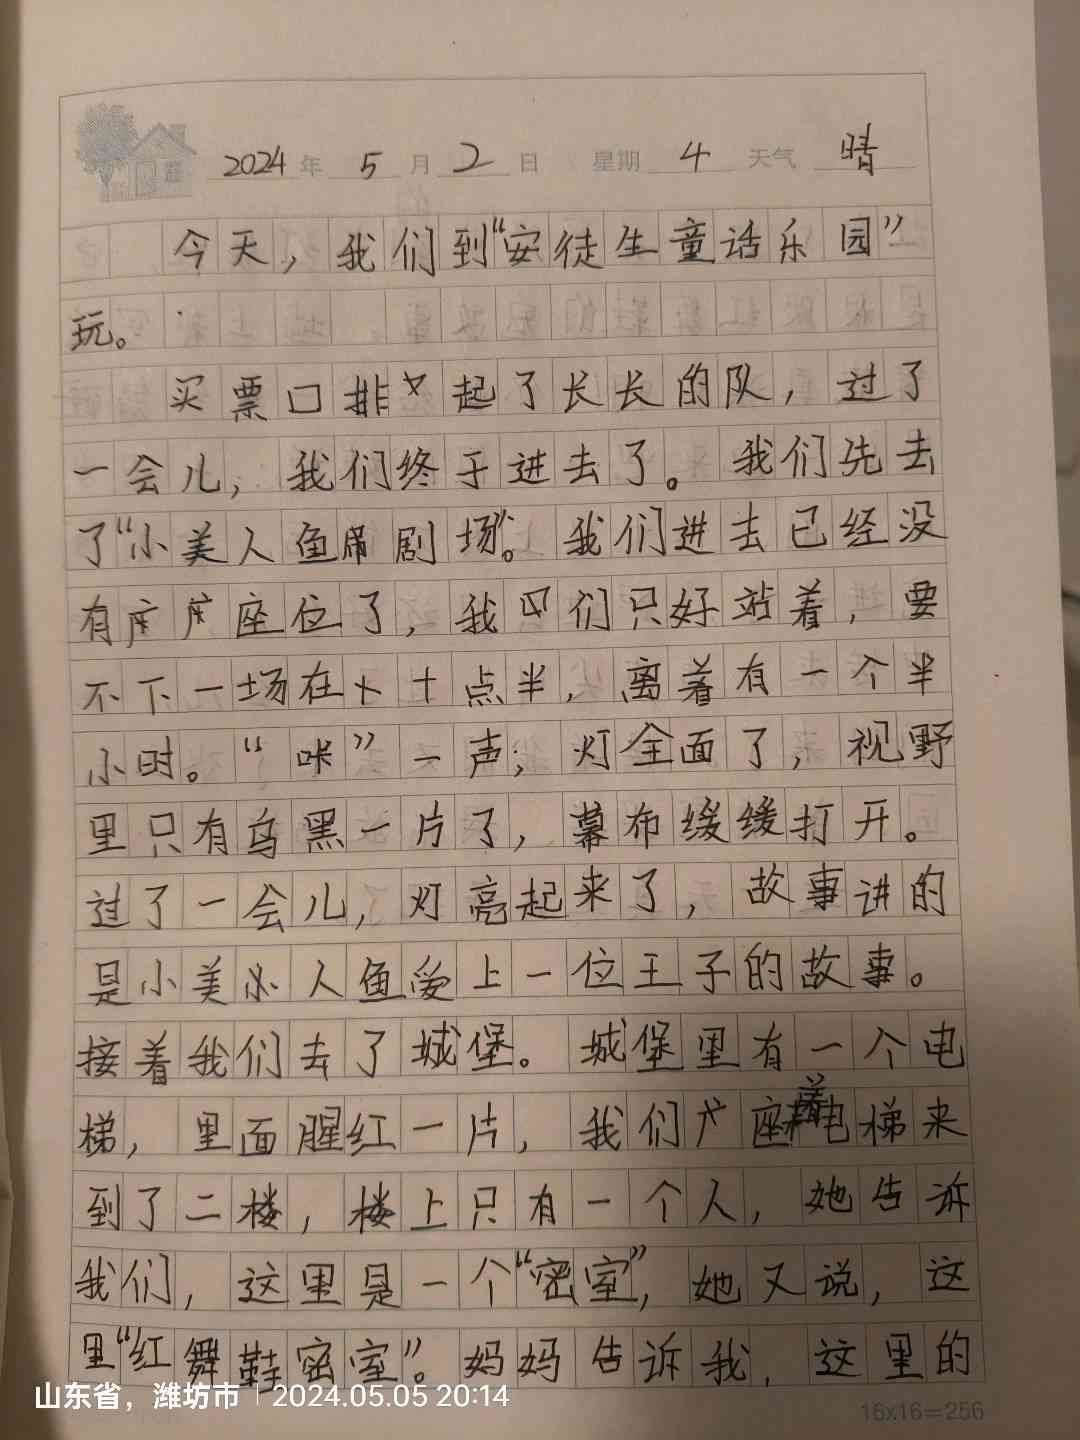 2024年5月2日 星期4 天气晴
今天，我们到“安徒生童话乐园”
玩。
买票口排起了长长的队，过了
一会儿，我们终于进去了。我们先去
了“小美人鱼剧场”。我们进去已经没
有座位了，我们只好站着，要
不下一场在十点半，离着有一个半
小时。“咔”一声；灯全面了，视野
里只有乌黑一片了，幕布缓缓打开。
过了一会儿，灯亮起来了，故事讲的
是小美人鱼爱上一位王子的故事。
接着我们去了城堡。城堡里有一个电
梯，里面腥红一片，我们座着电梯来
到了二楼，楼上只有一个人，她告诉
我们，这里是一个“密室”，她又说，这
里“红舞鞋密室”。妈妈告诉我，这里的
16x16=256
山东省，潍坊市 | 2024.05.05 20:14